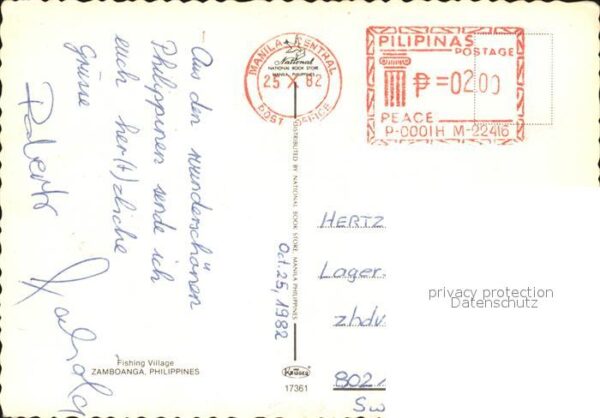 Aus den wunderschönen
Philippinen sende ich
euch her(t)zliche
Grüsse
Fishing Village
ZAMBOANGA, PHILIPPINES
MANILA CENTRAL
POST OFFICE
25 X 82
National
NATIONAL BOOK STORE
MANILA, PHILIPPINES
DISTRIBUTED BY NATIONAL BOOK STORE MANILA PHILIPPINES
Oct. 25, 1982
KRUGER
17361
PILIPINAS
POSTAGE
₱=02.00
PEACE
P-0001H M-22416
HERTZ
Lager
zhdv
802
SW
privacy protection
Datenschutz